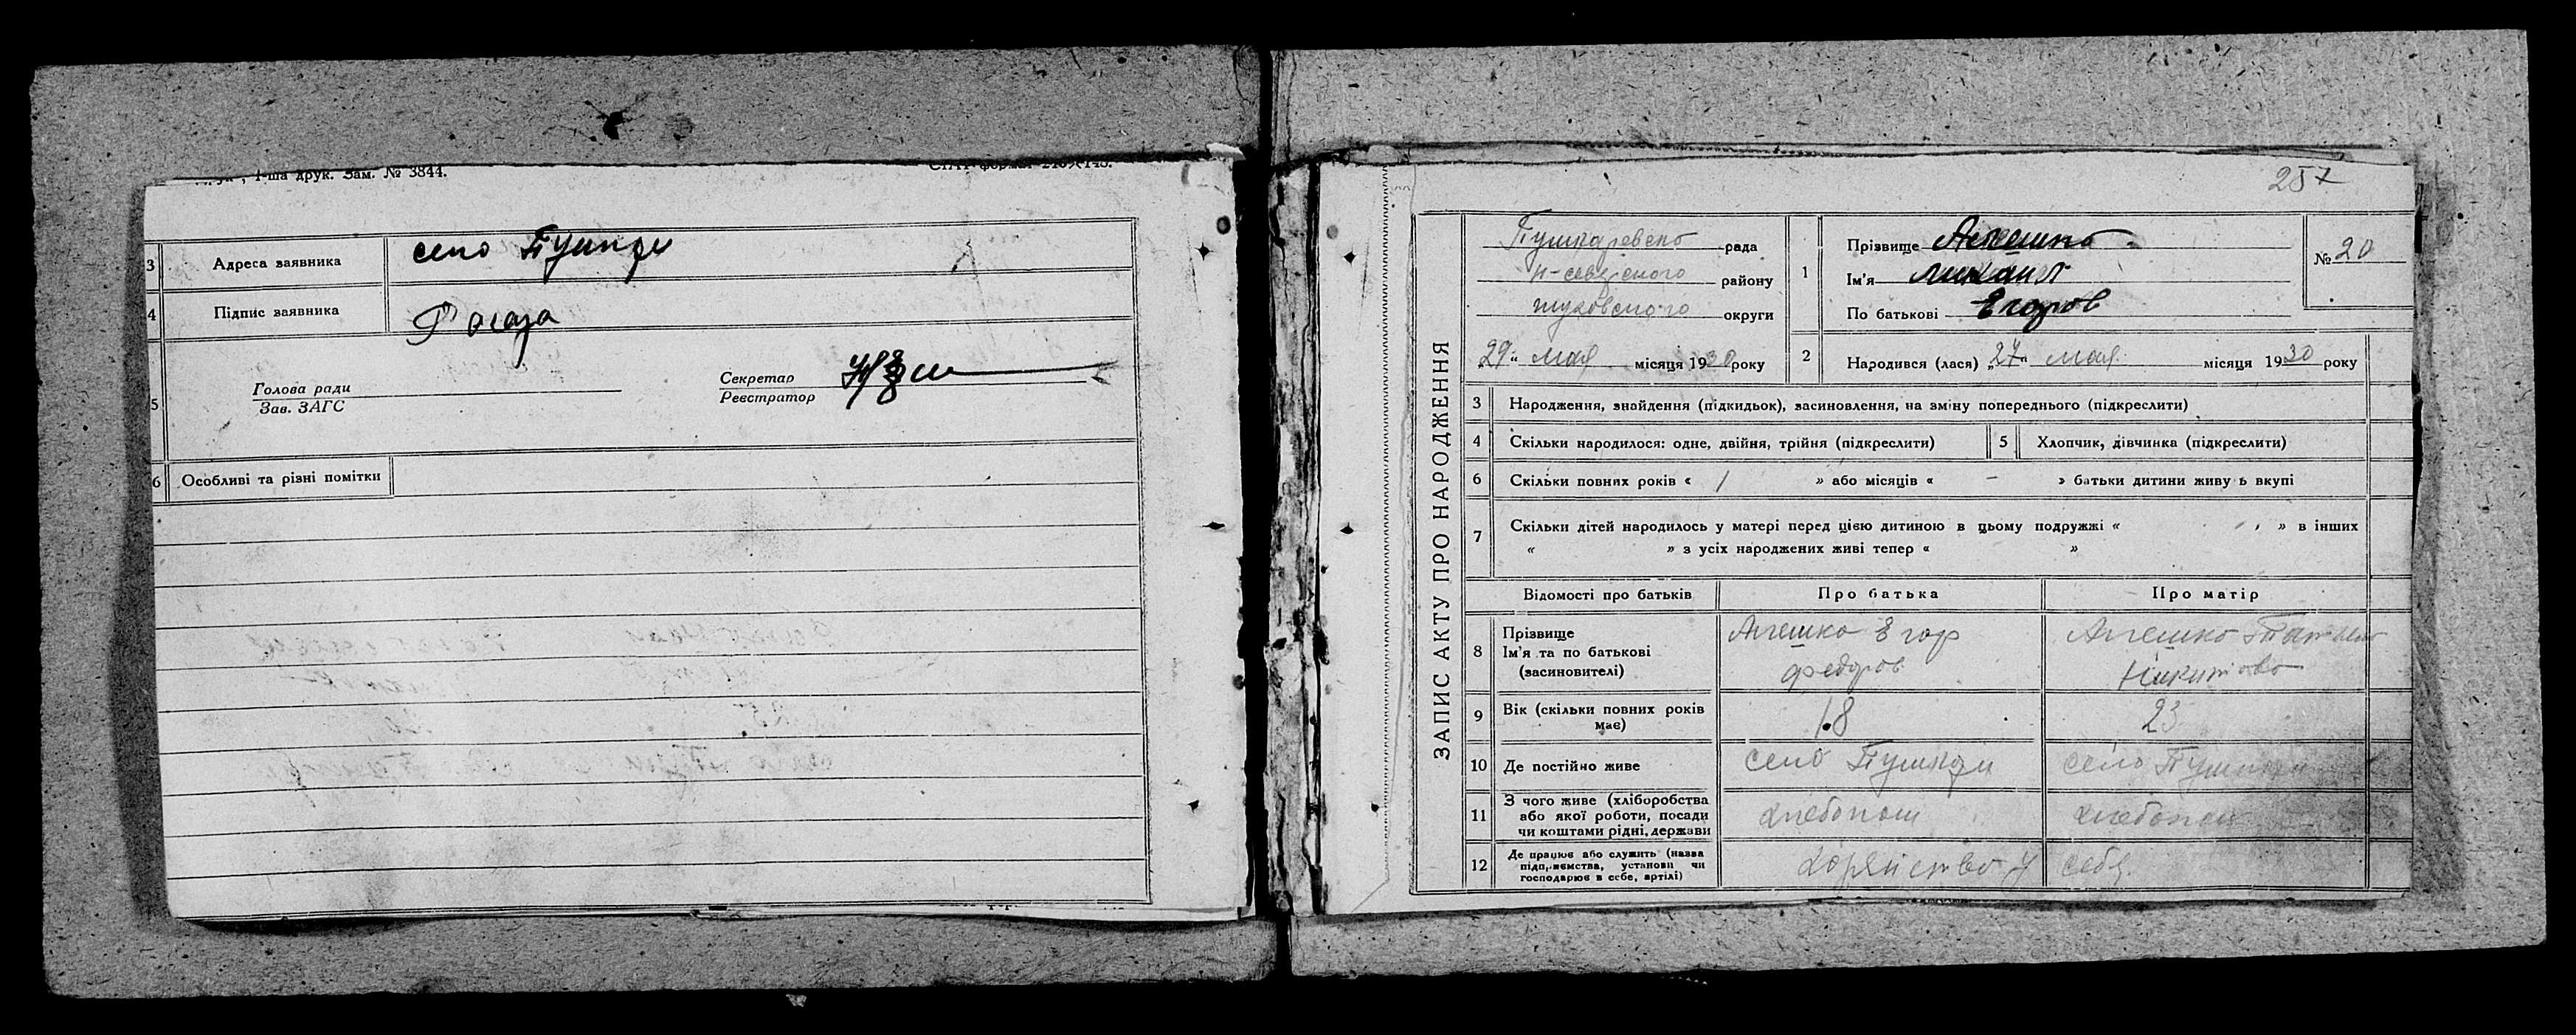 1-ша друк. Зам. № 3844.
3 Адреса заявника село Пушкари
4 Підпис заявника
5 Голова ради
Зав. ЗАГС
Секретар
Реєстратор
6 Особливі та різні помітки
257
ЗАПИС АКТУ ПРО НАРОДЖЕННЯ
рада
району
округи
„29“ мая місяця 1930 року
1 Прізвище
Ім'я Михаил
По батькові Егоров
№ 20
2 Народився (лася) „27“ мая місяця 1930 року
3 Народження, знайдення (підкидьок), засиновлення, на зміну попереднього (підкреслити)
4 Скільки народилося: одне, двійня, трійня (підкреслити)
5 Хлопчик, дівчинка (підкреслити)
6 Скільки повних років « / » або місяців « – » батьки дитини живуть вкупі
7 Скільки дітей народилось у матері перед цією дитиною в цьому подружжі « » в інших
« » з усіх народжених живі тепер « »
Відомості про батьків Про батька Про матір
8 Прізвище
Ім'я та по батькові
(засиновителі)
Егор
Федоров
Никитовна
9 Вік (скільки повних років має) 18 23
10 Де постійно живе село Пушкари село Пушкари
11 З чого живе (хліборобства
або якої роботи, посади
чи коштами рідні, держави
хлебопаш хлебопаш
12 Де працює або служить (назва
підприємства, установи чи
господарює в себе, артілі)
у себя